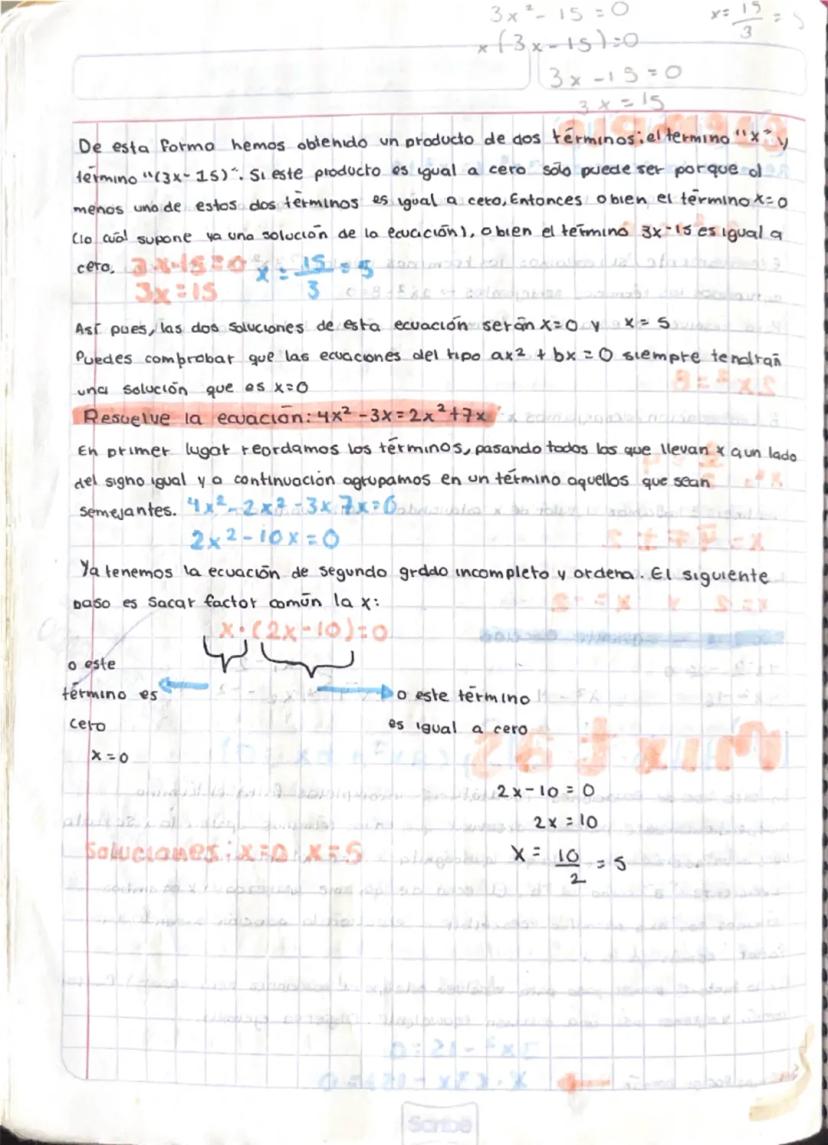 3x² - 15 = 0
x = 15/3 =
x (3x - 15) = 0
3x - 15 = 0
3x = 15
De esta forma hemos obtenido un producto de dos términos: el termino "x" y
término "(3x - 15)". Si este producto es igual a cero sólo puede ser porque al
menos uno de estos dos términos es igual a cero, Entonces o bien el término x=0
(lo cuál supone ya una solución de la ecuación), o bien el término 3x-15 es igual a
cero. 3x-15=0 x = 15/3 = 5
3x = 15
Así pues, las dos soluciones de esta ecuación serán x=0 y x=5
Puedes comprobar que las ecuaciones del tipo ax² + bx = 0 siempre tendrán
una solución que es x=0
Resuelve la ecuación: 4x² - 3x = 2x² + 7x
En primer lugar reordamos los términos, pasando todos los que llevan x a un lado
del signo igual y a continuación agrupamos en un término aquellos que sean
semejantes. 4x² - 2x² - 3x 7x = 0
2x² - 10x = 0
Ya tenemos la ecuación de segundo grado incompleto y ordena. El siguiente
paso es sacar factor común la x:
x · (2x - 10) = 0
o este
término es
cero
x = 0
o este término
es igual a cero
2x - 10 = 0
2x = 10
x = 10/2 = 5
Soluciones: x=0 x=5
Scribe